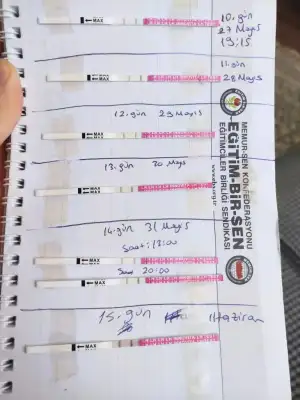 10. gün
27 Mayıs
19:15
MAX
11. gün
28 Mayıs
MAX
12. gün 29 Mayıs
MAX
13. gün 30 Mayıs
MAX
14. gün 31 Mayıs
Saat: 13:00
MAX
Saat 20:00
MAX
15. gün 1 Haziran
MAX
MEMUR-SEN KONFEDERASYONU
EĞİTİM-BİR-SEN
EĞİTİMCİLER BİRLİĞİ SENDİKASI